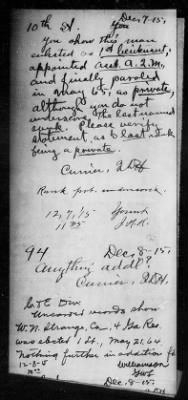 10th A. Dec. 7-15,
You
You show this man
enlisted as 1st lieutenant,
appointed Asst. A.Q.M.,
and finally paroled
in May 65, as private,
although you do not
underscore the last named
rank. Please verify
statement, as to last rank
being a private.
Currier, F.D.H.
Rank not underscored.
12,7,15 Yount
1125 J.H.R.
94 Dec. 8-15,
Anything addl?
Currier, F.D.H.
C & E Div
Uncarded records show
W. N. Strange, Co. , Ga Res.
was elected 1 Lt., May 21, 64
Nothing further in addition
12-8-15 Williamson
Dec. 8-15.